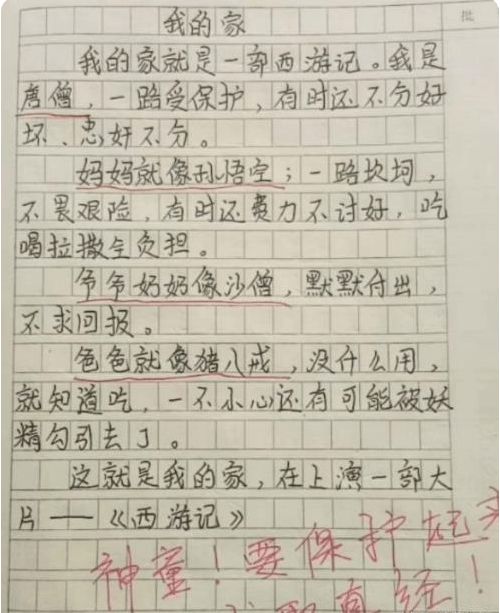 批
我的家
我的家就是一部西游记。我是
唐僧，一路受保护，有时还不分好
坏、忠奸不分。
妈妈就像孙悟空；一路坎坷，
不畏艰险，有时还费力不讨好，吃
喝拉撒全负担。
爷爷奶奶像沙僧，默默付出，
不求回报。
爸爸就像猪八戒，没什么用，
就知道吃，一不小心还有可能被妖
精勾引去了。
这就是我的家，在上演一部大
片——《西游记》
神童！要保护起来
真经！